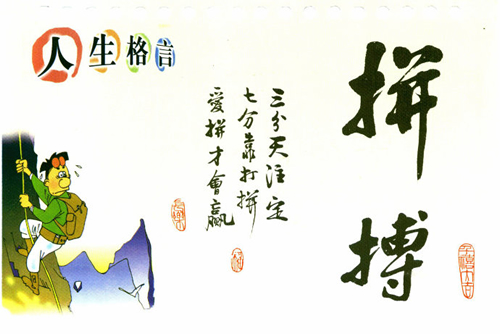 人生格言
拼搏
三分天注定
七分靠打拼
愛拼才會贏